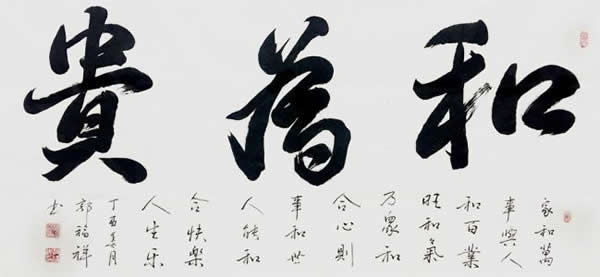 和為貴
家和萬
事興人
和百業
旺和氣
乃衆和
合心則
事和世
人能和
合快樂
人生乐
丁酉春月
郭福祥
书